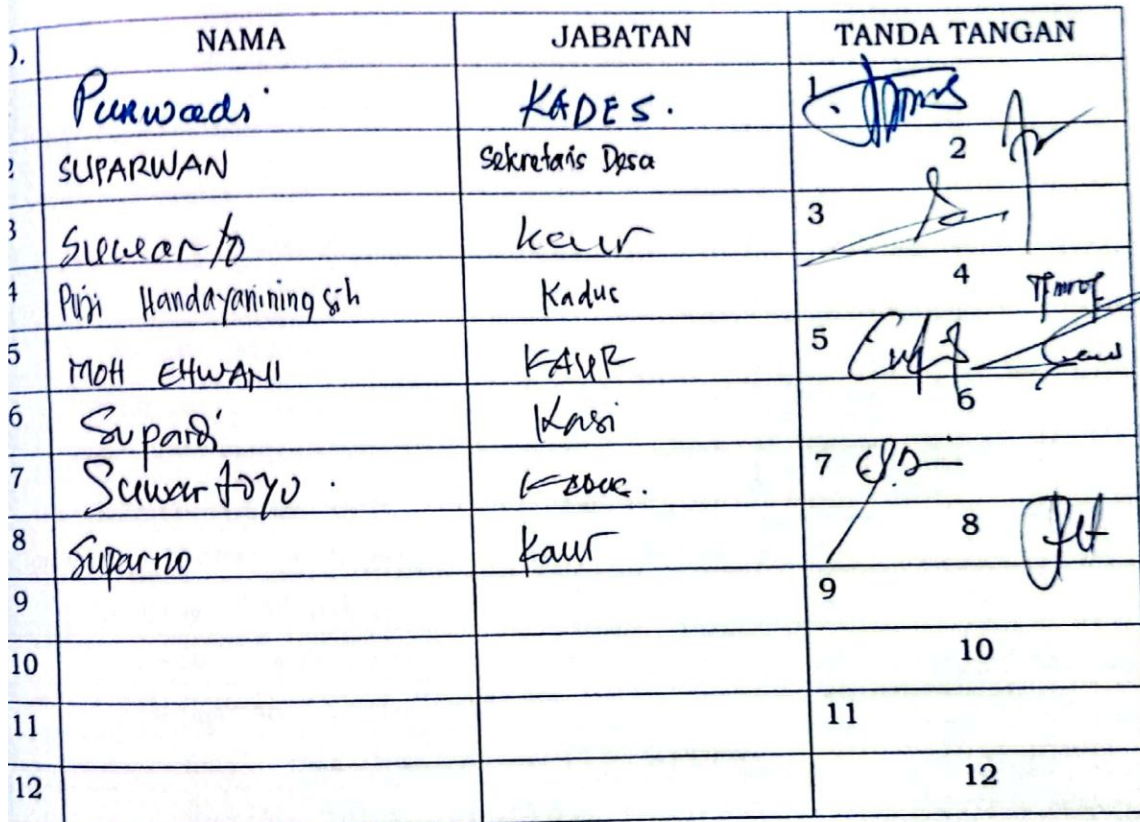 NAMA JABATAN TANDA TANGAN
Purwadi KADES. 1
2 SUPARWAN Sekretaris Desa 2
3 Suwarto Kaur 3
4 Puji Handayaniningsih Kadus 4
5 MOH EHWANI KAUR 5
6 Supardi Kasi 6
7 Suwartoyo. Kadus. 7
8 Suparno Kaur 8
9 9
10 10
11 11
12 12